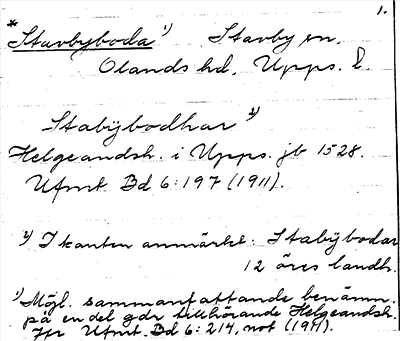 1.
* Stavbyboda 1) Stavby sn,
Olands hd, Upps. l.
Stabÿbodhar 2)
Helgeandsh. i Upps. jb 1528.
Ufmt Bd 6:197 (1911).
2) I kanten anmärkt: Stabÿbodar
12 öres landh.
1) Möjl. sammanfattande benämn.
på en del gdr tillhörande Helgeandsh.
Jfr Ufmt. Bd 6:214, not (1911).